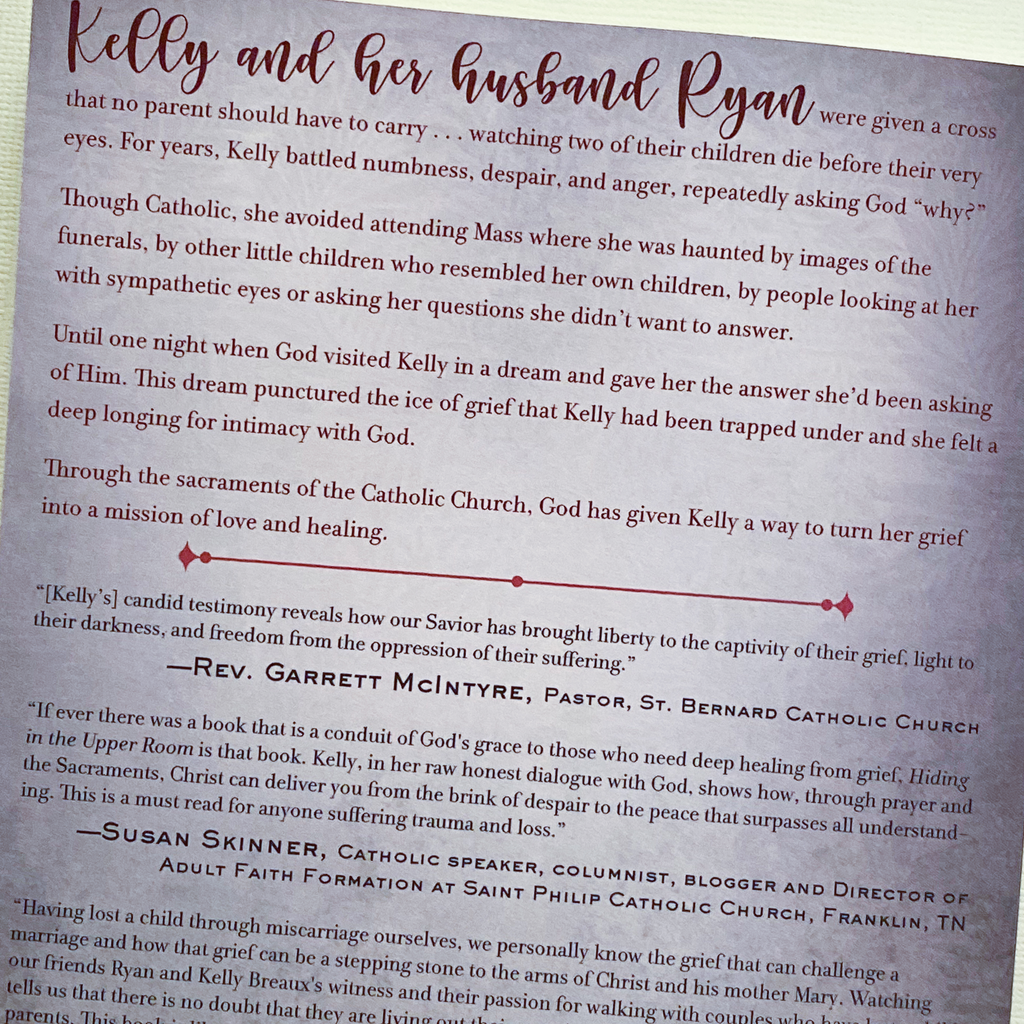 Kelly and her husband Ryan were given a cross
that no parent should have to carry . . . watching two of their children die before their very
eyes. For years, Kelly battled numbness, despair, and anger, repeatedly asking God “why?”
Though Catholic, she avoided attending Mass where she was haunted by images of the
funerals, by other little children who resembled her own children, by people looking at her
with sympathetic eyes or asking her questions she didn’t want to answer.
Until one night when God visited Kelly in a dream and gave her the answer she’d been asking
of Him. This dream punctured the ice of grief that Kelly had been trapped under and she felt a
deep longing for intimacy with God.
Through the sacraments of the Catholic Church, God has given Kelly a way to turn her grief
into a mission of love and healing.
“[Kelly’s] candid testimony reveals how our Savior has brought liberty to the captivity of their grief, light to
their darkness, and freedom from the oppression of their suffering.”
—Rev. Garrett McIntyre, Pastor, St. Bernard Catholic Church
“If ever there was a book that is a conduit of God's grace to those who need deep healing from grief, Hiding
in the Upper Room is that book. Kelly, in her raw honest dialogue with God, shows how, through prayer and
the Sacraments, Christ can deliver you from the brink of despair to the peace that surpasses all understand-
ing. This is a must read for anyone suffering trauma and loss.”
—Susan Skinner, Catholic speaker, columnist, blogger and Director of
Adult Faith Formation at Saint Philip Catholic Church, Franklin, TN
“Having lost a child through miscarriage ourselves, we personally know the grief that can challenge a
marriage and how that grief can be a stepping stone to the arms of Christ and his mother Mary. Watching
our friends Ryan and Kelly Breaux's witness and their passion for walking with couples who
tells us that there is no doubt that they are living out
parents. This book is